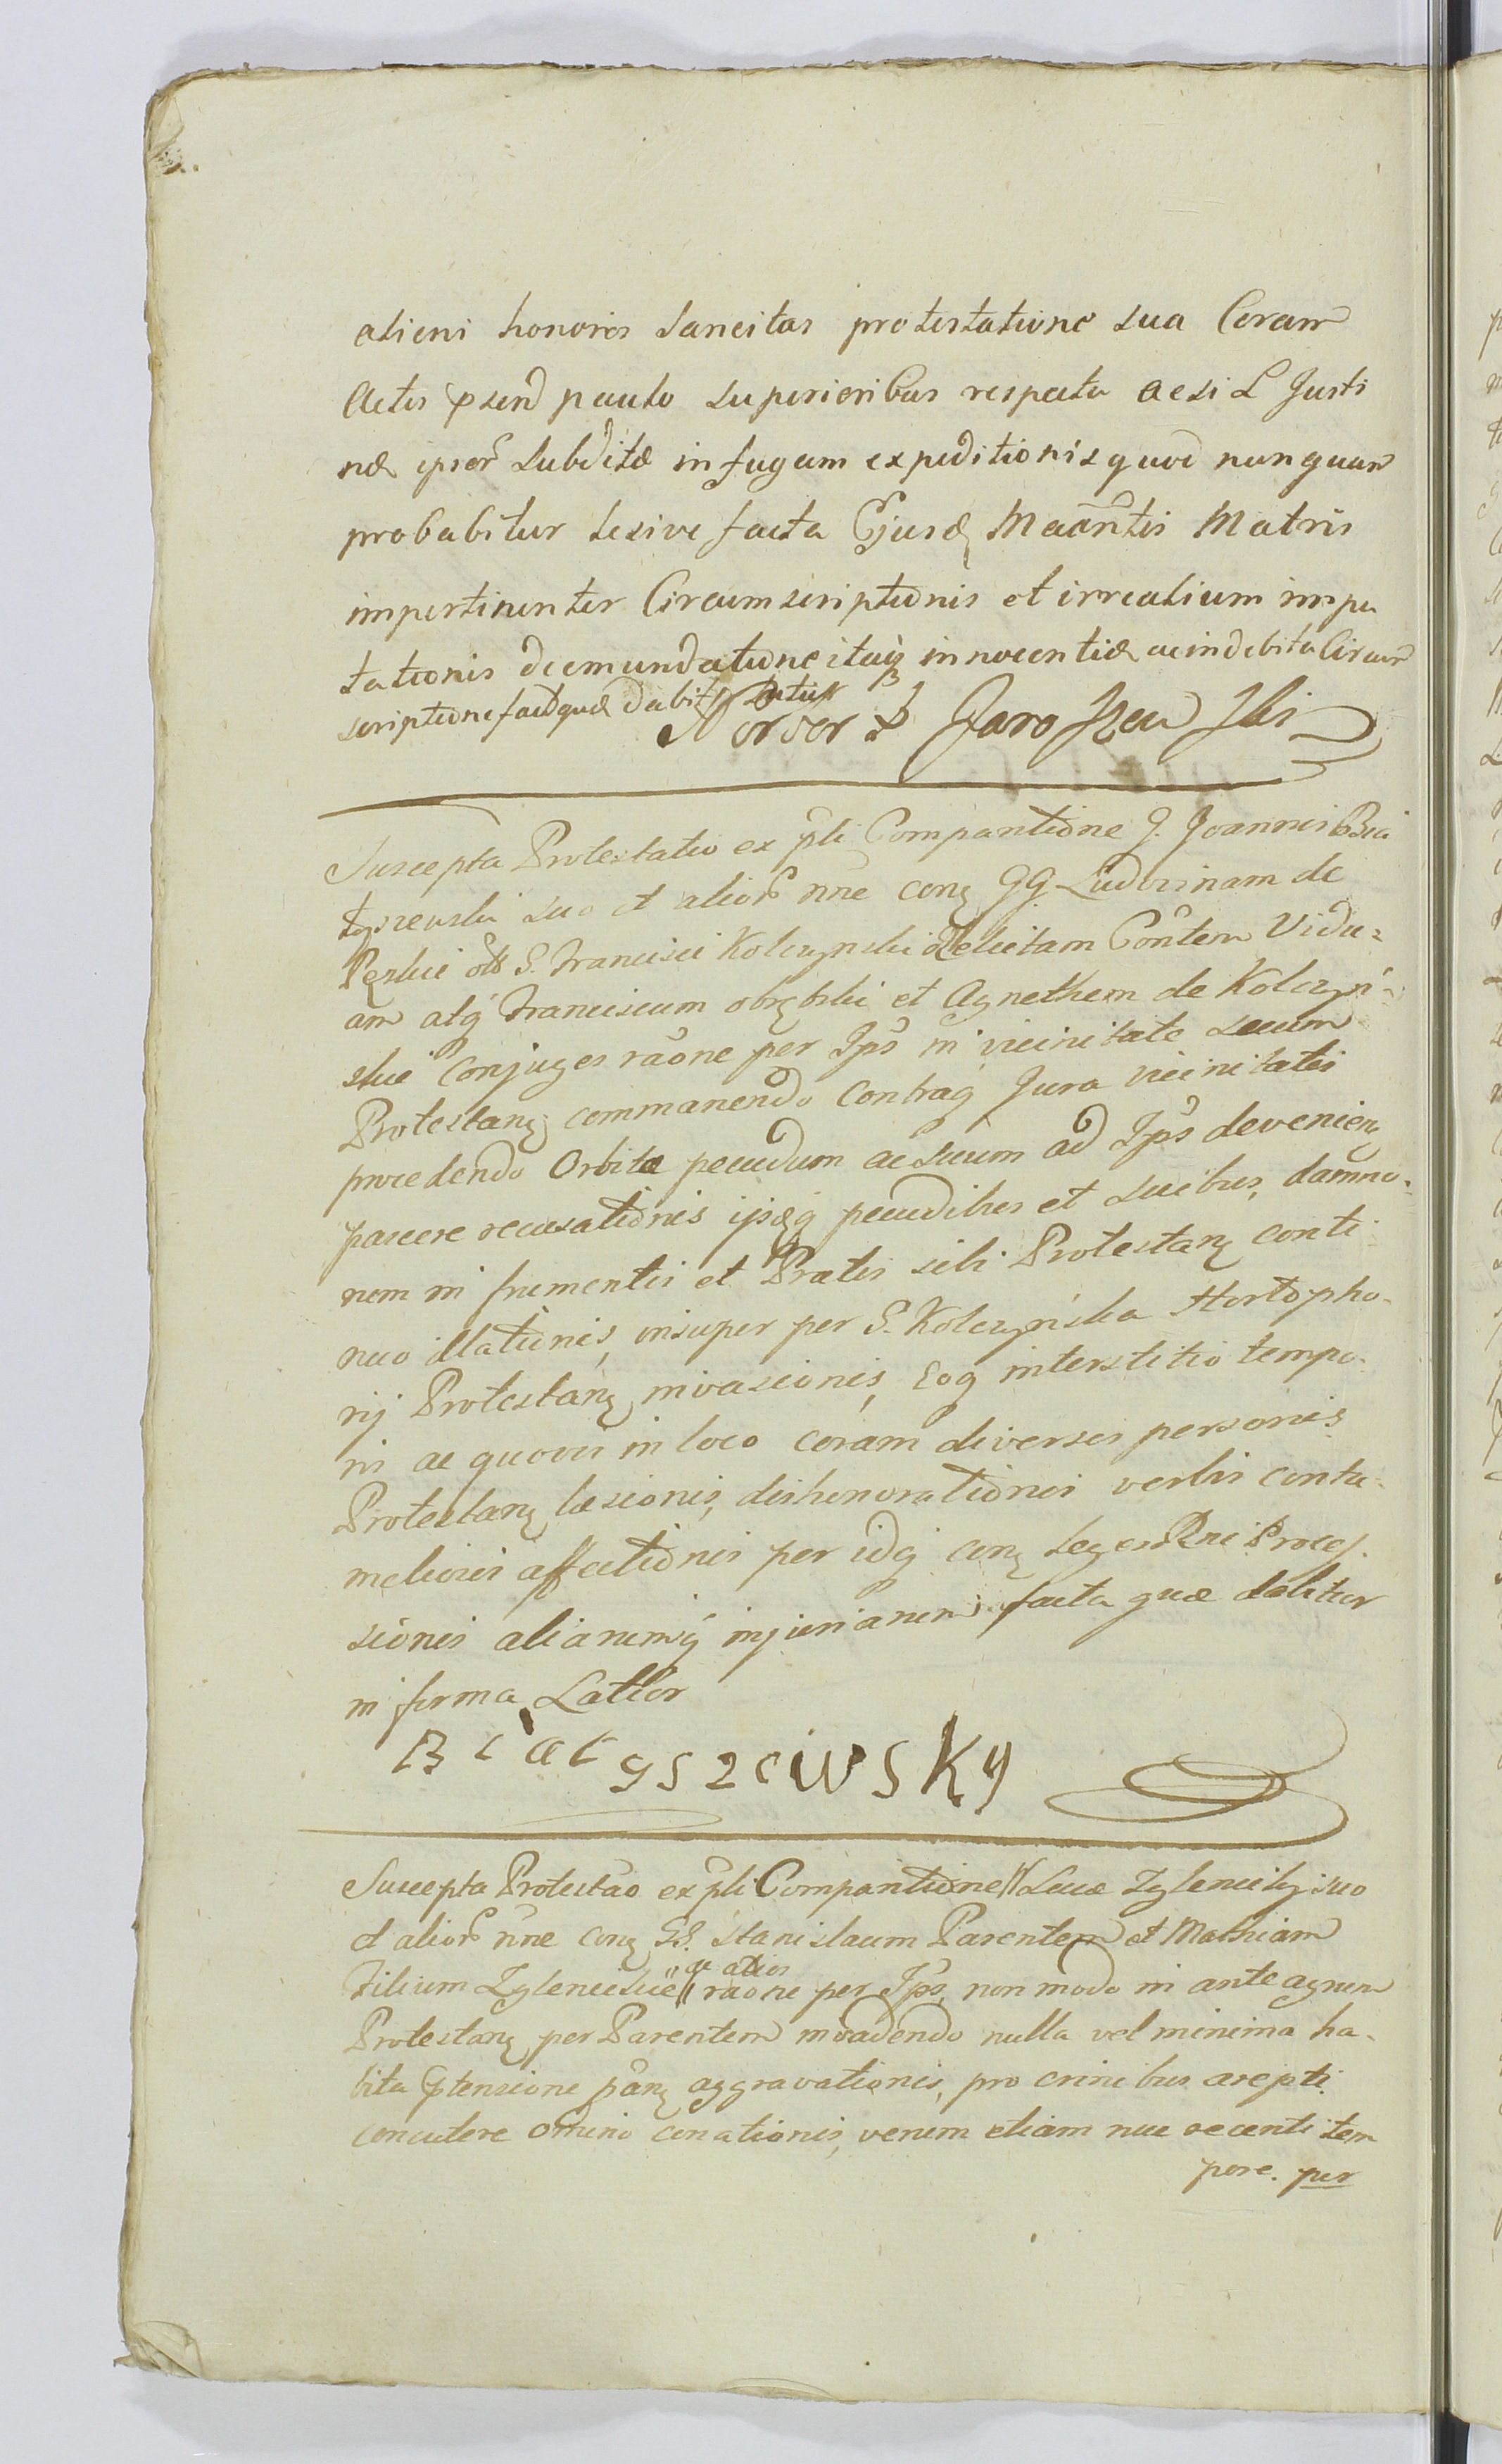 alieni honoris sancitas protestatione sua Coram
Actis psend paulo superioribus respectu acsi L Justi
næ ipsor subditæ in fugam expeditionis quod nunquam
probabitur lesive facta Ejusd Maantis Matris
impertinenter Circumscriptionis et irrealium impu
tationis deemundatione itaq innocentiæ ac indebita Circum
scriptione facta quæ dabitur latius
Jaroszewski
Suscepta Protestatio ex pli Comparitione G. Joannis Bia
tyszewski suo et alior nne conq GG Ludovinam de
Pęskie olt S. Francisci Kolczynski Relictam Contem Vidu=
am atq Franciscum obrębski et Agnethem de Kolczyń=
skie Conjuges raone per Ips in vicinitate secum
Protestanq commanendo contraq Jura vicinitatis
procedendo Orbitæ pecudum ac suum ad Ips devenienq
pascere recusationis ipsisq pecudibus et suibus, damno-
rum in frumentis et Pratis sibi Protestanq conti
nuo illationis, insuper per S. Kolczyńska Hortopho-
rij Protestanq invasionis, Eoq interstitio tempo-
ris ac quovis in loco coram diversis personis
Protestanq læsionis, dishonorationis verbis contu-
meliosis affectionis per idq conq Leges Rni Proces-
sionis aliarumq injuriarum facta quæ dabitur
in forma Lattior
Biatyszewsky
Suscepta Protestao ex pli Comparitione // Lucæ Zglenicky suo
et alior nne conq SS. Stanislaum Parentem et Mathiam
Filium Zglenickie // ac alios raone per Ips, non modo in ante agrum
Protestanq per Parentem invadendo nulla vel minima ha-
bita ptensione panq aggravationis, pro crinibus arepti
concutere omnino conationis, verum etiam nuc recenti tem
pore. per